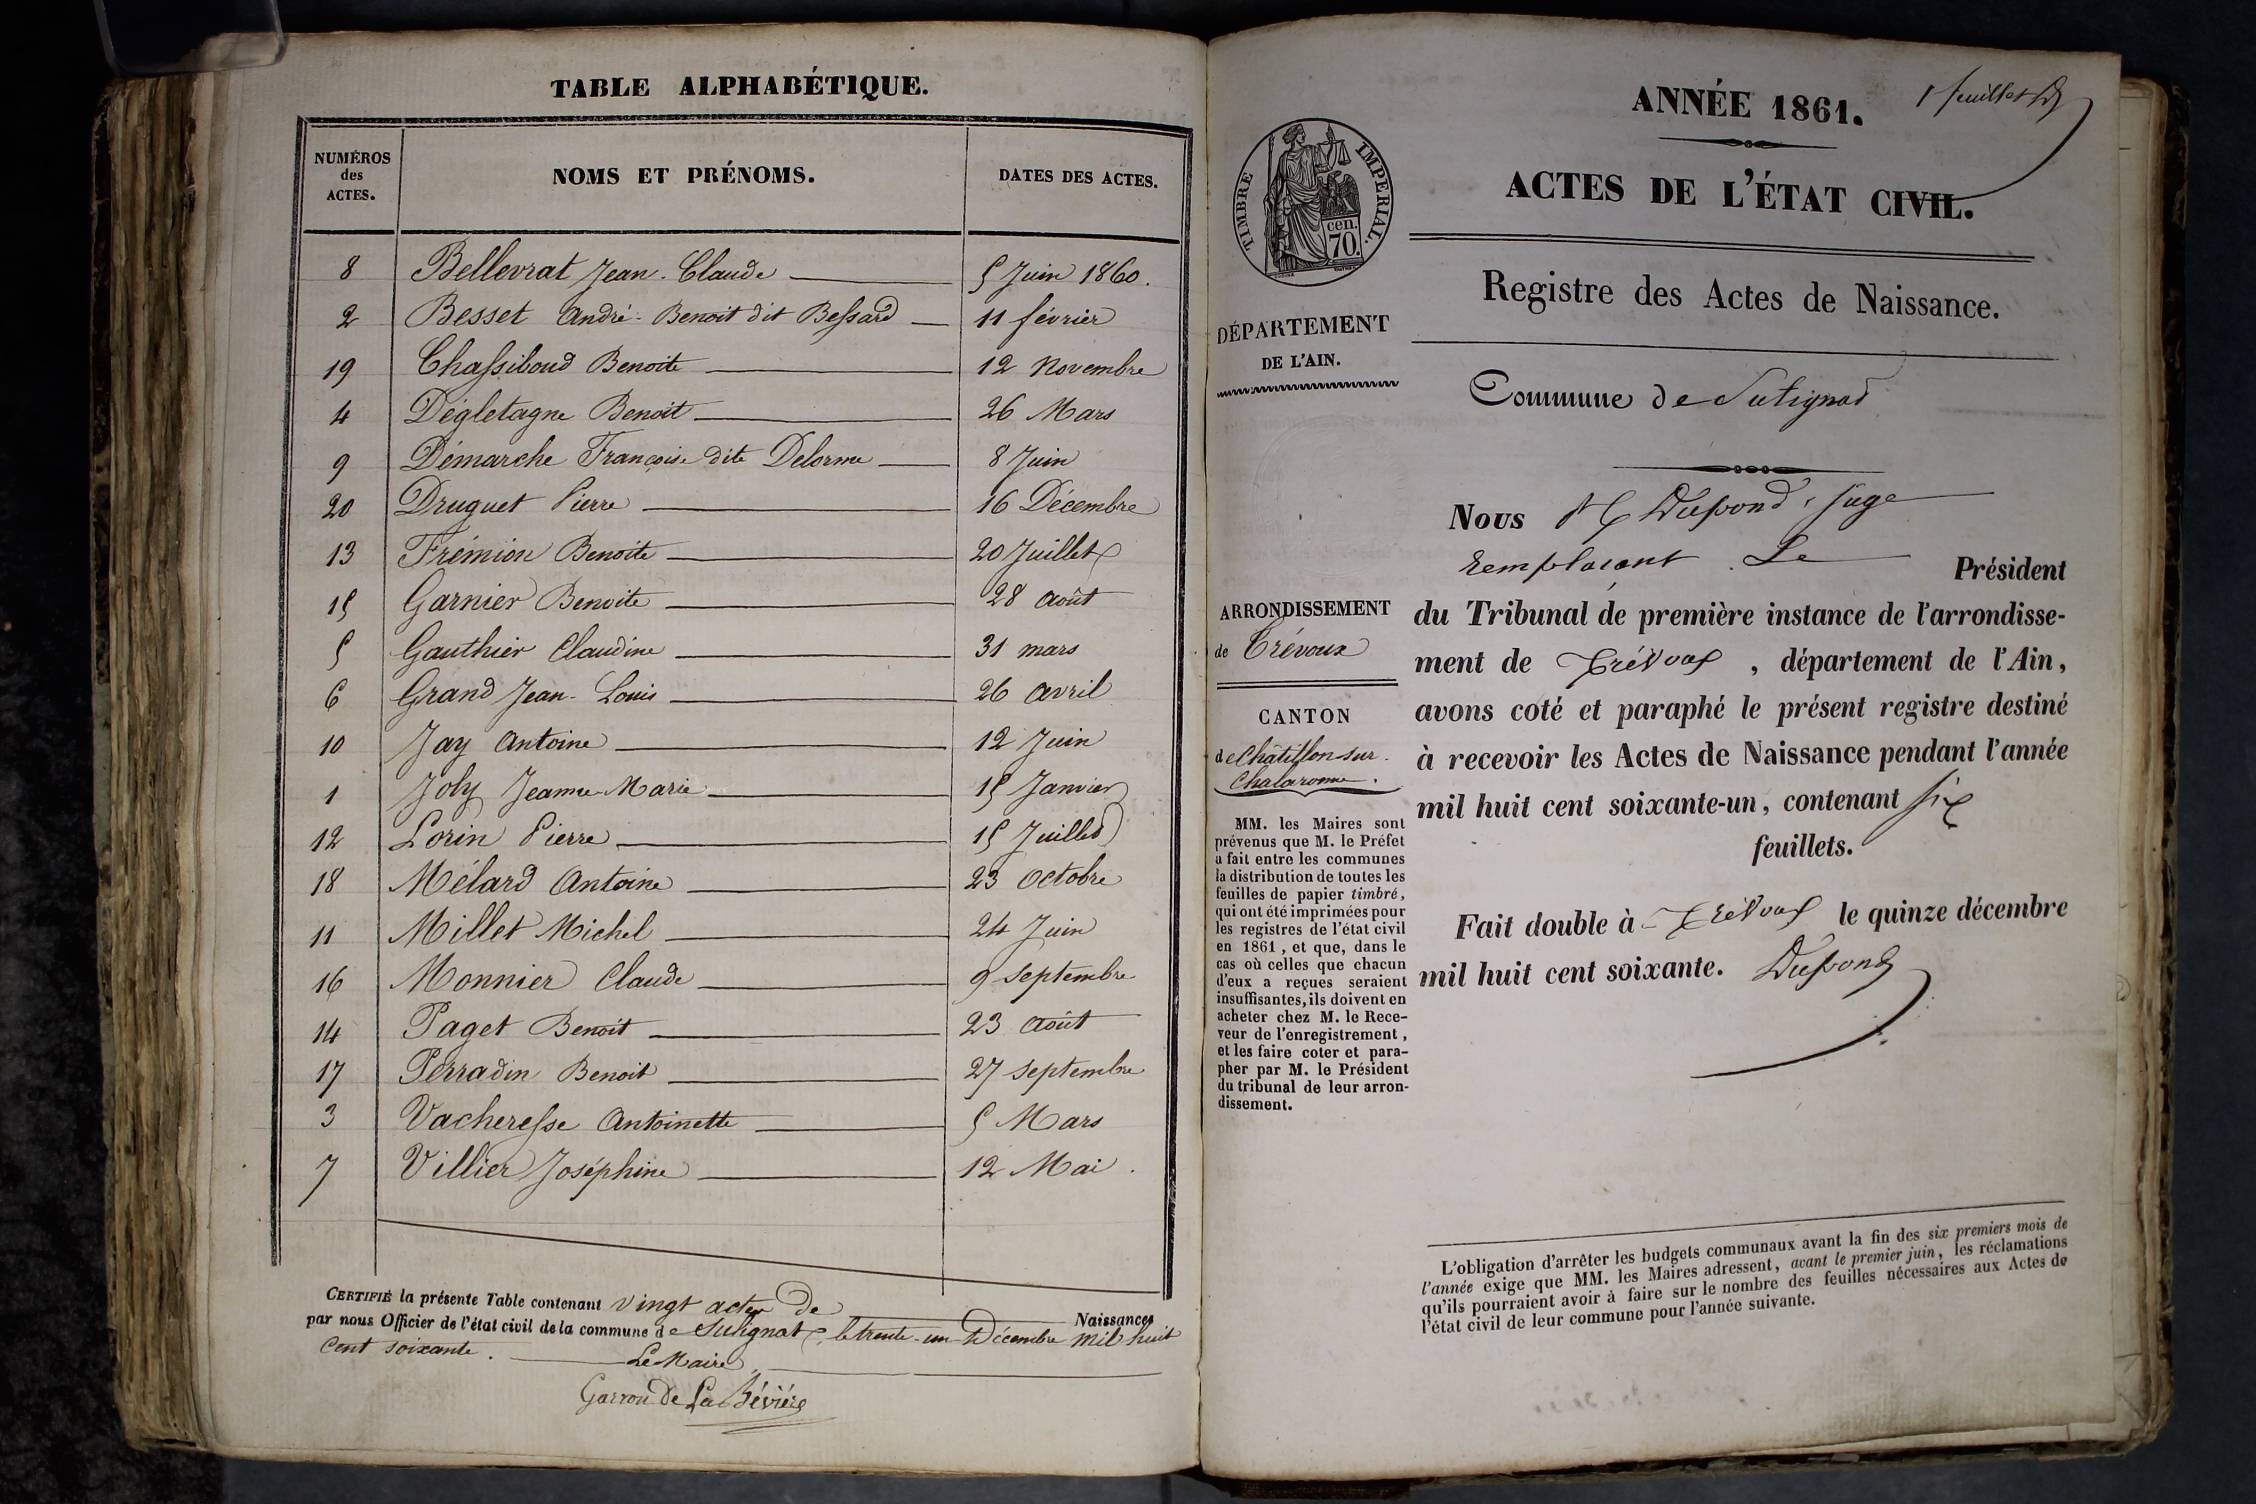 TABLE ALPHABÉTIQUE.
NUMÉROS des ACTES. NOMS ET PRÉNOMS. DATES DES ACTES.
8 Bellevrat Jean-Claude 5 Juin 1860.
2 Besset André-Benoit dit Bessard 11 février
19 Chassiboud Benoite 12 Novembre
4 Dégletagne Benoit 26 Mars
9 Démarche Françoise dite Delorme 8 Juin
20 Druguet Pierre 16 Décembre
13 Frémion Benoite 20 Juillet
15 Garnier Benoite 28 Août
5 Gauthier Claudine 31 mars
6 Grand Jean-Louis 26 avril
10 Jay Antoine 12 Juin
1 Joly Jeanne-Marie 15 Janvier
12 Lorin Pierre 15 Juillet
18 Mélard Antoine 23 Octobre
11 Millet Michel 24 Juin
16 Monnier Claude 9 Septembre
14 Paget Benoit 23 Août
17 Perradin Benoit 27 Septembre
3 Vacheresse Antoinette 5 Mars
7 Villier Joséphine 12 Mai.
CERTIFIÉ la présente Table contenant vingt actes de Naissances
par nous Officier de l'état civil de la commune de Sulignat, le trente-un Décembre mil huit
cent soixante. Le Maire
Garron de La Bévière
1er feuillet D
ANNÉE 1861.
ACTES DE L'ÉTAT CIVIL.
Registre des Actes de Naissance.
TIMBRE IMPÉRIAL.
cen. 70.
DÉPARTEMENT
DE L'AIN.
Commune de Sulignat
ARRONDISSEMENT
de Trévoux
CANTON
de Châtillon-sur-
Chalaronne.
MM. les Maires sont
prévenus que M. le Préfet
a fait entre les communes
la distribution de toutes les
feuilles de papier timbré,
qui ont été imprimées pour
les registres de l'état civil
en 1861, et que, dans le
cas où celles que chacun
d'eux a reçues seraient
insuffisantes, ils doivent en
acheter chez M. le Rece-
veur de l'enregistrement,
et les faire coter et para-
pher par M. le Président
du tribunal de leur arron-
dissement.
Nous Dupond, juge
remplaçant Le Président
du Tribunal de première instance de l'arrondisse-
ment de Trévoux, département de l'Ain,
avons coté et paraphé le présent registre destiné
à recevoir les Actes de Naissance pendant l'année
mil huit cent soixante-un, contenant six
feuillets.
Fait double à Trévoux le quinze décembre
mil huit cent soixante. Dupond
L'obligation d'arrêter les budgets communaux avant la fin des six premiers mois de
l'année exige que MM. les Maires adressent, avant le premier juin, les réclamations
qu'ils pourraient avoir à faire sur le nombre des feuilles nécessaires aux Actes de
l'état civil de leur commune pour l'année suivante.